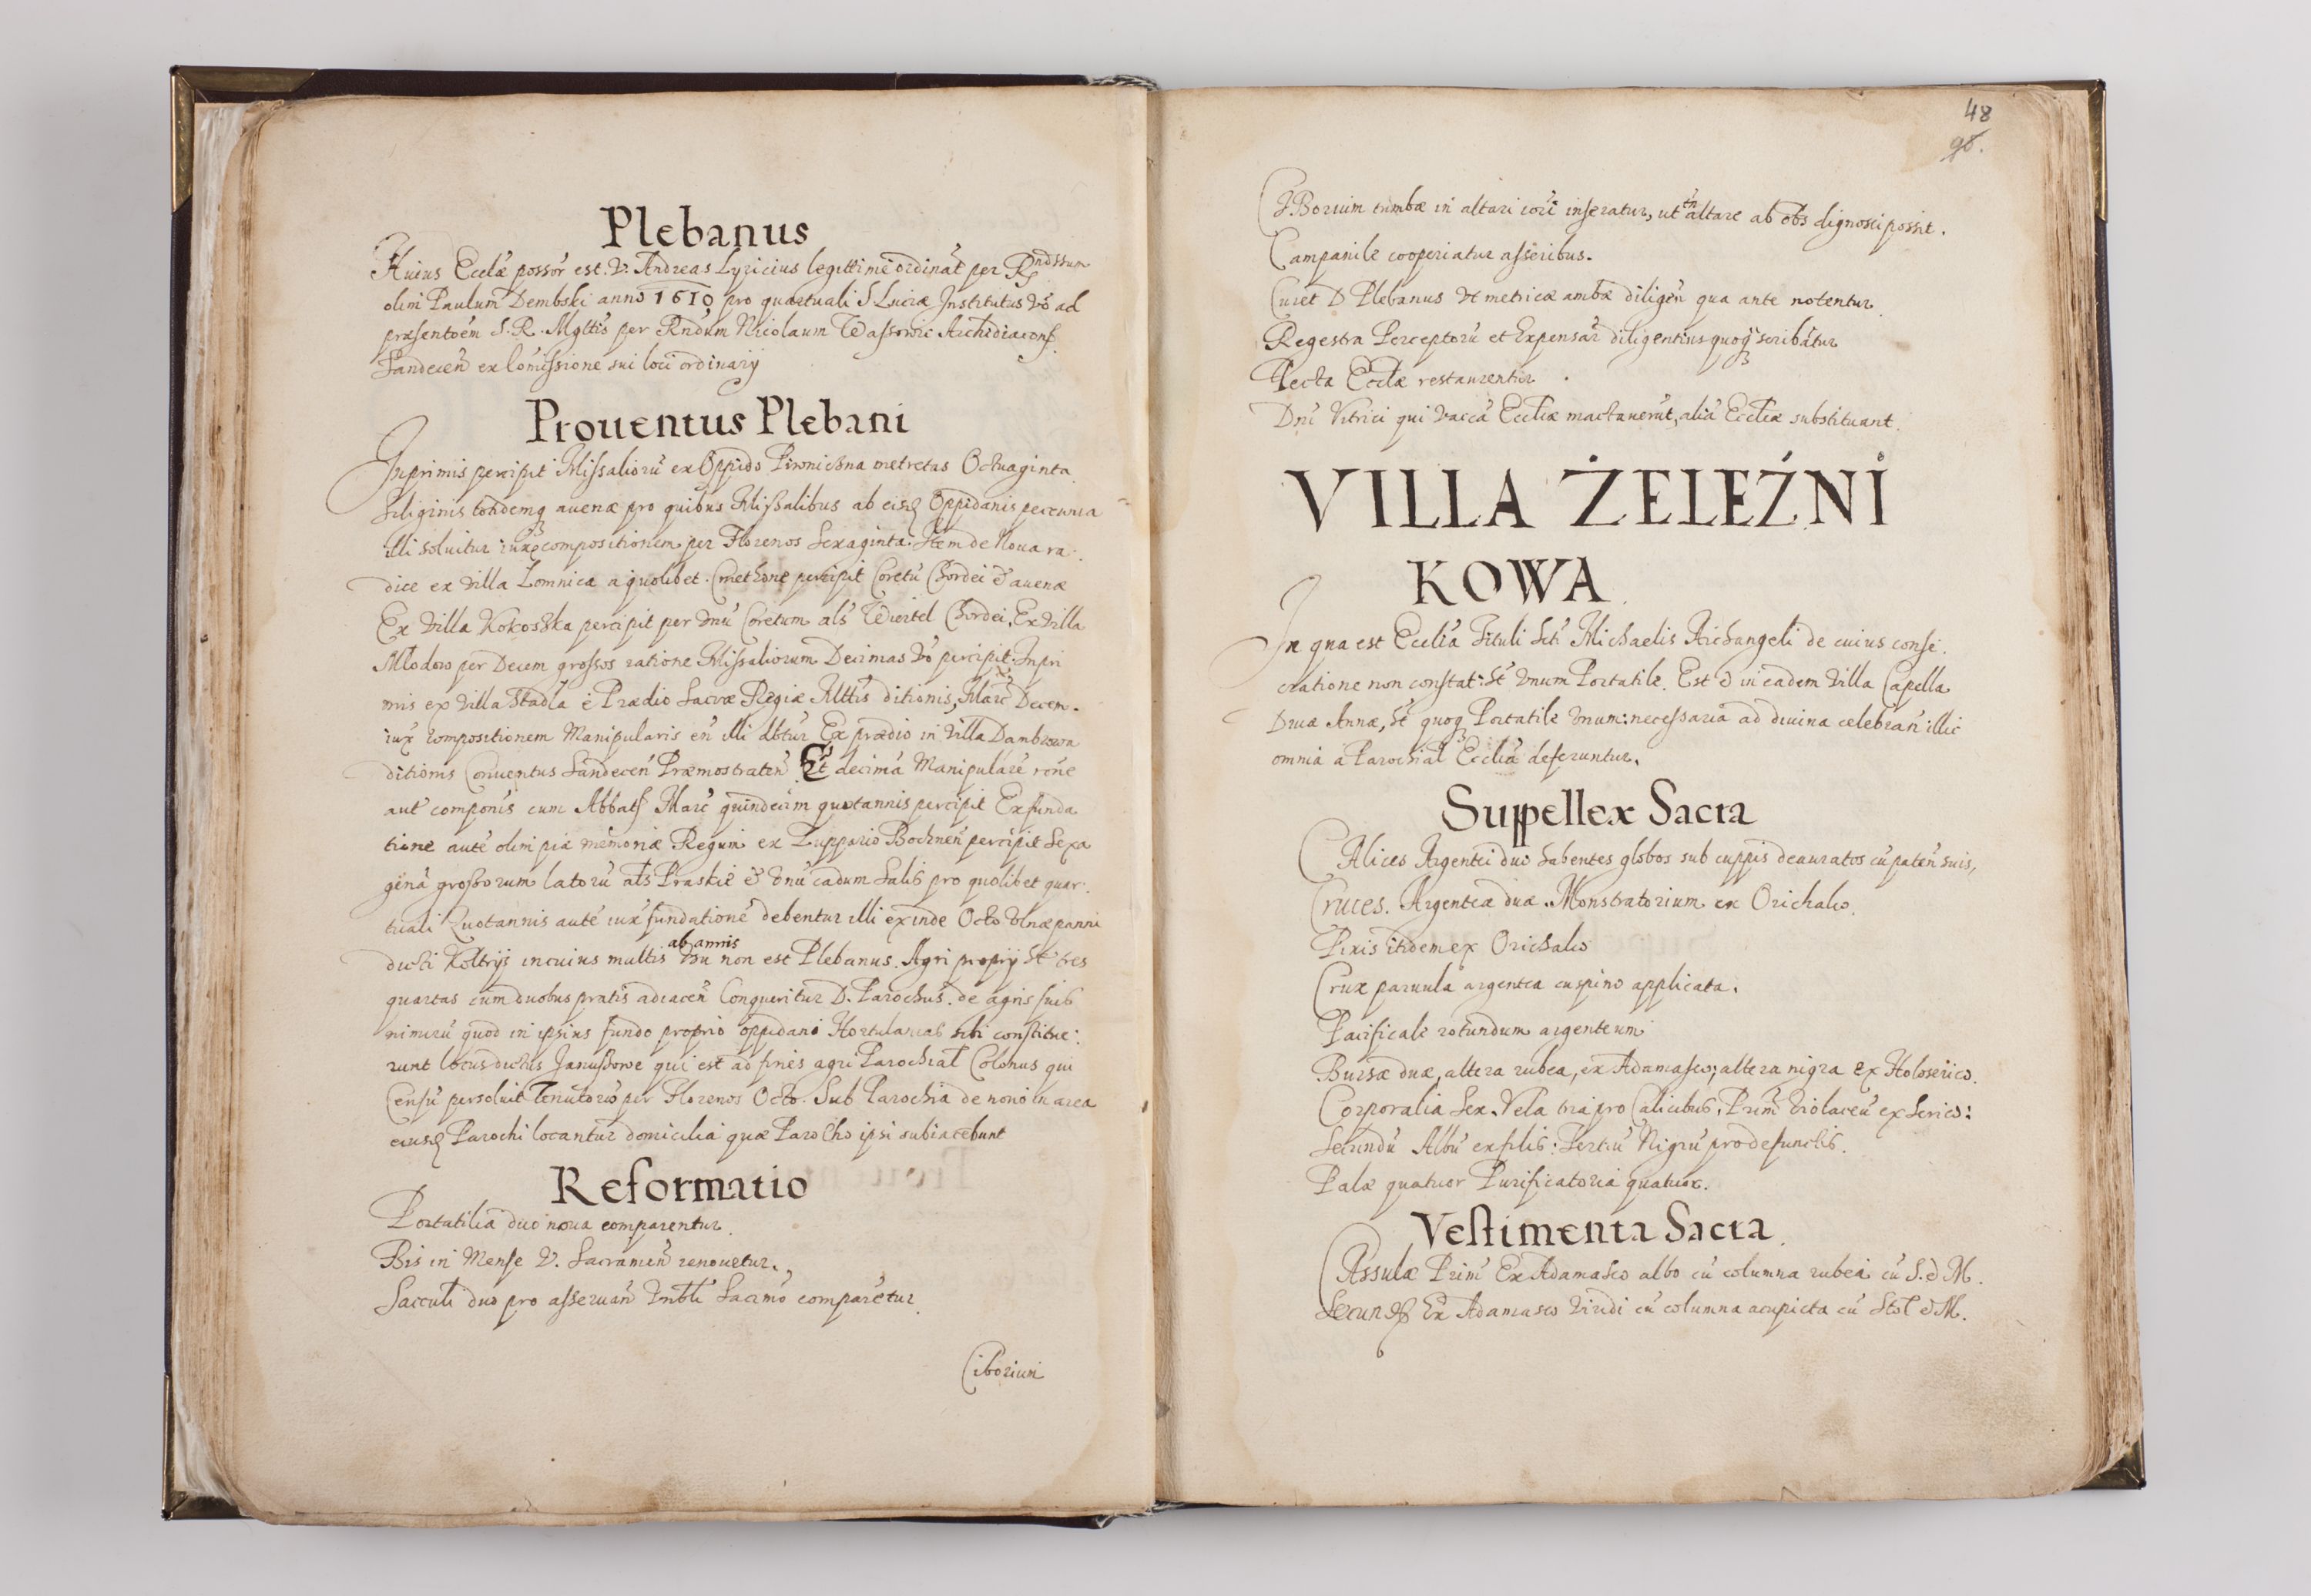 Plebanus
Huius Eccl̃æ possor̃ est V. Andreas Lyricius legittime ordinat̃ per Rndssum
olim Paulum Dembski anno 1610 pro quartuali S Luciæ Institutus ṽo ad
præsentoẽm S. R. Mgltis per Rndum Nicolaum Wassowic Archidiaconũ
Sandeceñ ex Comissione sui loci ordinarij
Prouentus Plebani
Inprimis percipit Missalioru ex Oppido Piwniczna metretas Octuaginta
Siliginis totidemq auenæ pro quibus Missalibus ab eisd Oppidanis pecunia
illi soluitur iuxͣ compositionem per Florenos Sexaginta. Item de Noua ra
dice ex villa Łomnica a quolibet Cmethone percipit Coretũ Chordei & auenæ
Ex villa Kokoszka percipit per vnũ Coretum als Wiertel Chordei, Ex villa
Młodow per Decem grossos ratione Missaliorum Decimas ṽo percipit: Inpri
mis ex villa Stadła è Prædio Sacræ Regiæ Mttis ditionis, Marc̃ Decem.
iux̃ compositionem Manipularis eñ illi dbtur Ex prædio in villa Dambrowa
ditionis Conuentus Sandeceñ Præmostrateñ Et decimã Manipularẽ rõne
aut componis cum Abbat Marc̃ quindecim quotannis percipit Ex funda
tione autẽ olim piæ memoriæ Regum ex Zuppario Bochneñ percipit Sexa
genã grossorum latorũ als Praskie & vnũ cadum Salis pro quolibet quar
tuali Quotannis autẽ iux̃ fundationẽ debentur illi exinde Octo vlnæ panni
dicti Koltryš in cuius multis ab annis vsu non est Plebanus. Agri proprij St̃ tres
quartas cum duobus pratis adiaceñ Conqueritur D. Parochus. de agris suis
nimirũ quod in ipsius fundo proprio oppidani Hortulanias sibi constitue:
runt locus dictus Janussowe qui est ad fines agri Parochial Colonus qui
Censũ persoluit Tenutorio per Florenos Octo. Sub Parochia de nono in area
eiusd Parochi locantur domicilia quæ Parocho ipsi subiacebunt
Reformatio
Portatilia duo noua comparentur.
Bis in Mense V. Sacrameñ renouetur.
Sacculi duo pro asseruañ Vmbli Sacrmo comparẽtur.
Ciborium
48
98.
CIBorium tumbæ in altari iori inseratur, ut tñ altare ab obs dignosci possit.
Campanile cooperiatur asseribus.
Curet D Plebanus vt metricæ ambæ diligeñ qua ante notentur
Regestra Perceptorũ et Expensar̃ diligentius quoq scribãtur
Tecta Eccl̃æ restaurentur.
Dni Vitrici qui vaccã Eccliæ mactauerũt, aliã Eccliæ substituant.
VILLA ŻELEŹNI
KOWA
In qua est Ecclia Tituli Scti Michaelis Archangeli de cuius conse
cratione non constat: St̃ vnum Portatile. Est & in eadem villa Capella
Diuæ Annæ, St̃ quoq Portatile vnum: necessaria ad diuina celebrañ illic
omnia à Parochial Eccliã deferuntur.
Suppellex Sacra
CAlices Argentei duo habentes globos sub cuppis deauratos cũ pateñ suis,
Cruces. Argenteæ duæ. Monstratorium ex Orichalco.
Pixis itidem ex Orichalco
Crux paruula argentea cuspino applicata.
Pacificale rotundum argenteum
Bursæ duæ, altera rubea, ex Adamasco; altera nigra ex Holoserico.
Corporalia Sex. Vela tria pro Calicibus. Prim̃ violaceũ ex Serico:
Secundũ Albũ ex filis: Tertiũ Nigrũ pro defunctis.
Palæ quatuor Purificatoria quatuor.
Vestimenta Sacra
CAssulæ Prim̃ Ex Adamasco albo cũ columna rubea cũ S. & M.
Secund Ex Adamasco viridi cũ columna acupicta cũ Stol & M.